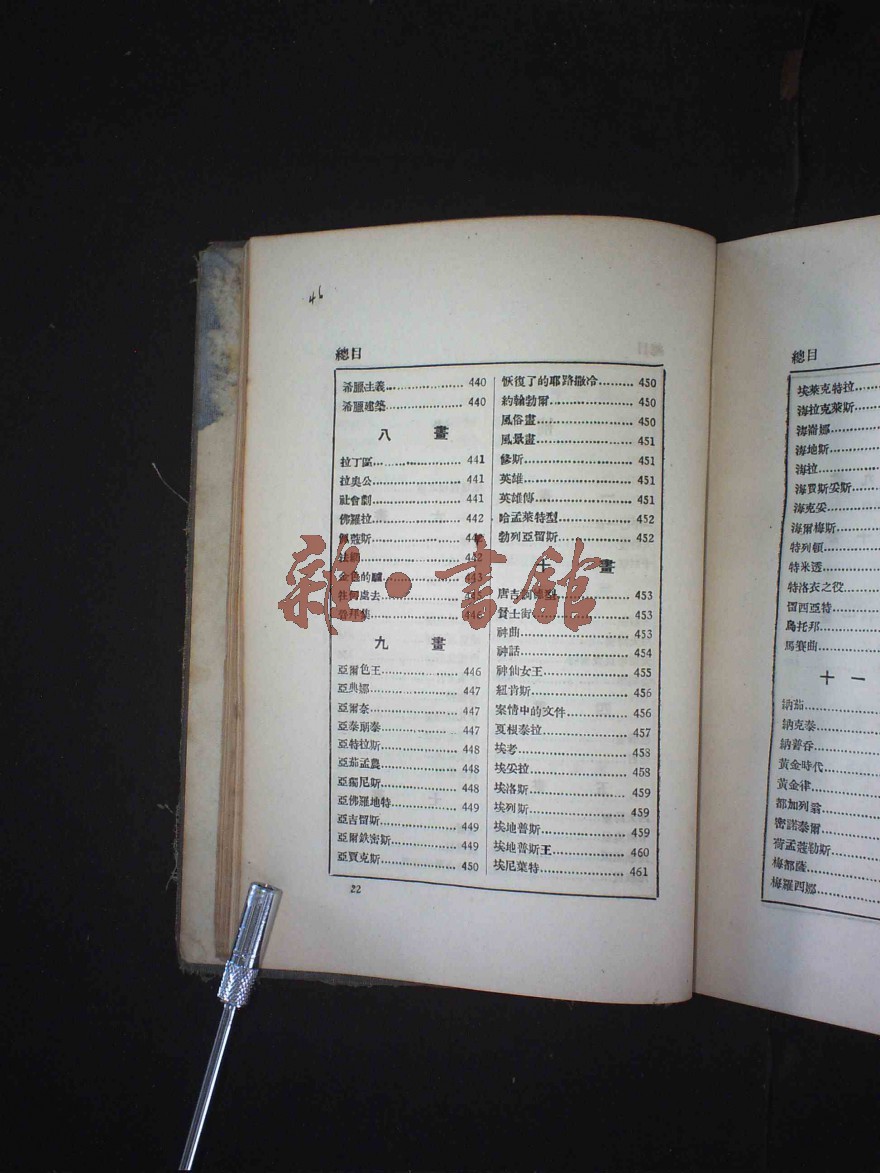 46
總目
希臘主義 440
希臘建築 440
八 畫
拉丁區 441
拉奥公 441
社會劇 441
佛羅拉 442
佩蔻斯 442
442
金色的驢 443
往何處去 445
446
九 畫
亞爾色王 446
亞典娜 447
亞爾泰 447
亞泰朋泰 447
亞特拉斯 448
亞茄孟農 448
亞獨尼斯 448
亞佛羅地特 449
亞吉留斯 449
亞爾鉄密斯 449
亞買克斯 450
22
恢復了的耶路撒冷 450
約翰勃爾 450
風俗畫 450
風景畫 451
修斯 451
英雄 451
英雄傳 451
哈孟萊特型 452
勃列亞留斯 452
十 畫
唐吉訶德型 453
賢士街 453
神曲 453
神話 454
神仙女王 455
紐肯斯 456
案情中的文件 456
夏根泰拉 457
埃考 458
埃妥拉 458
埃洛斯 459
埃列斯 459
埃地普斯 459
埃地普斯王 460
埃尼葉特 461
總目
埃萊克特拉
海拉克萊斯
海崙娜
海地斯
海拉
海買斯妥斯
海克妥
海爾梅斯
特列頓
特米透
特洛衣之役
留西亞特
烏托邦
馬賽曲
十一
納茄
納克泰
納普吞
黃金時代
黃金律
都加列翁
密諾泰爾
荷孟蔻勒斯
梅都薩
梅羅四娜
雜·書館